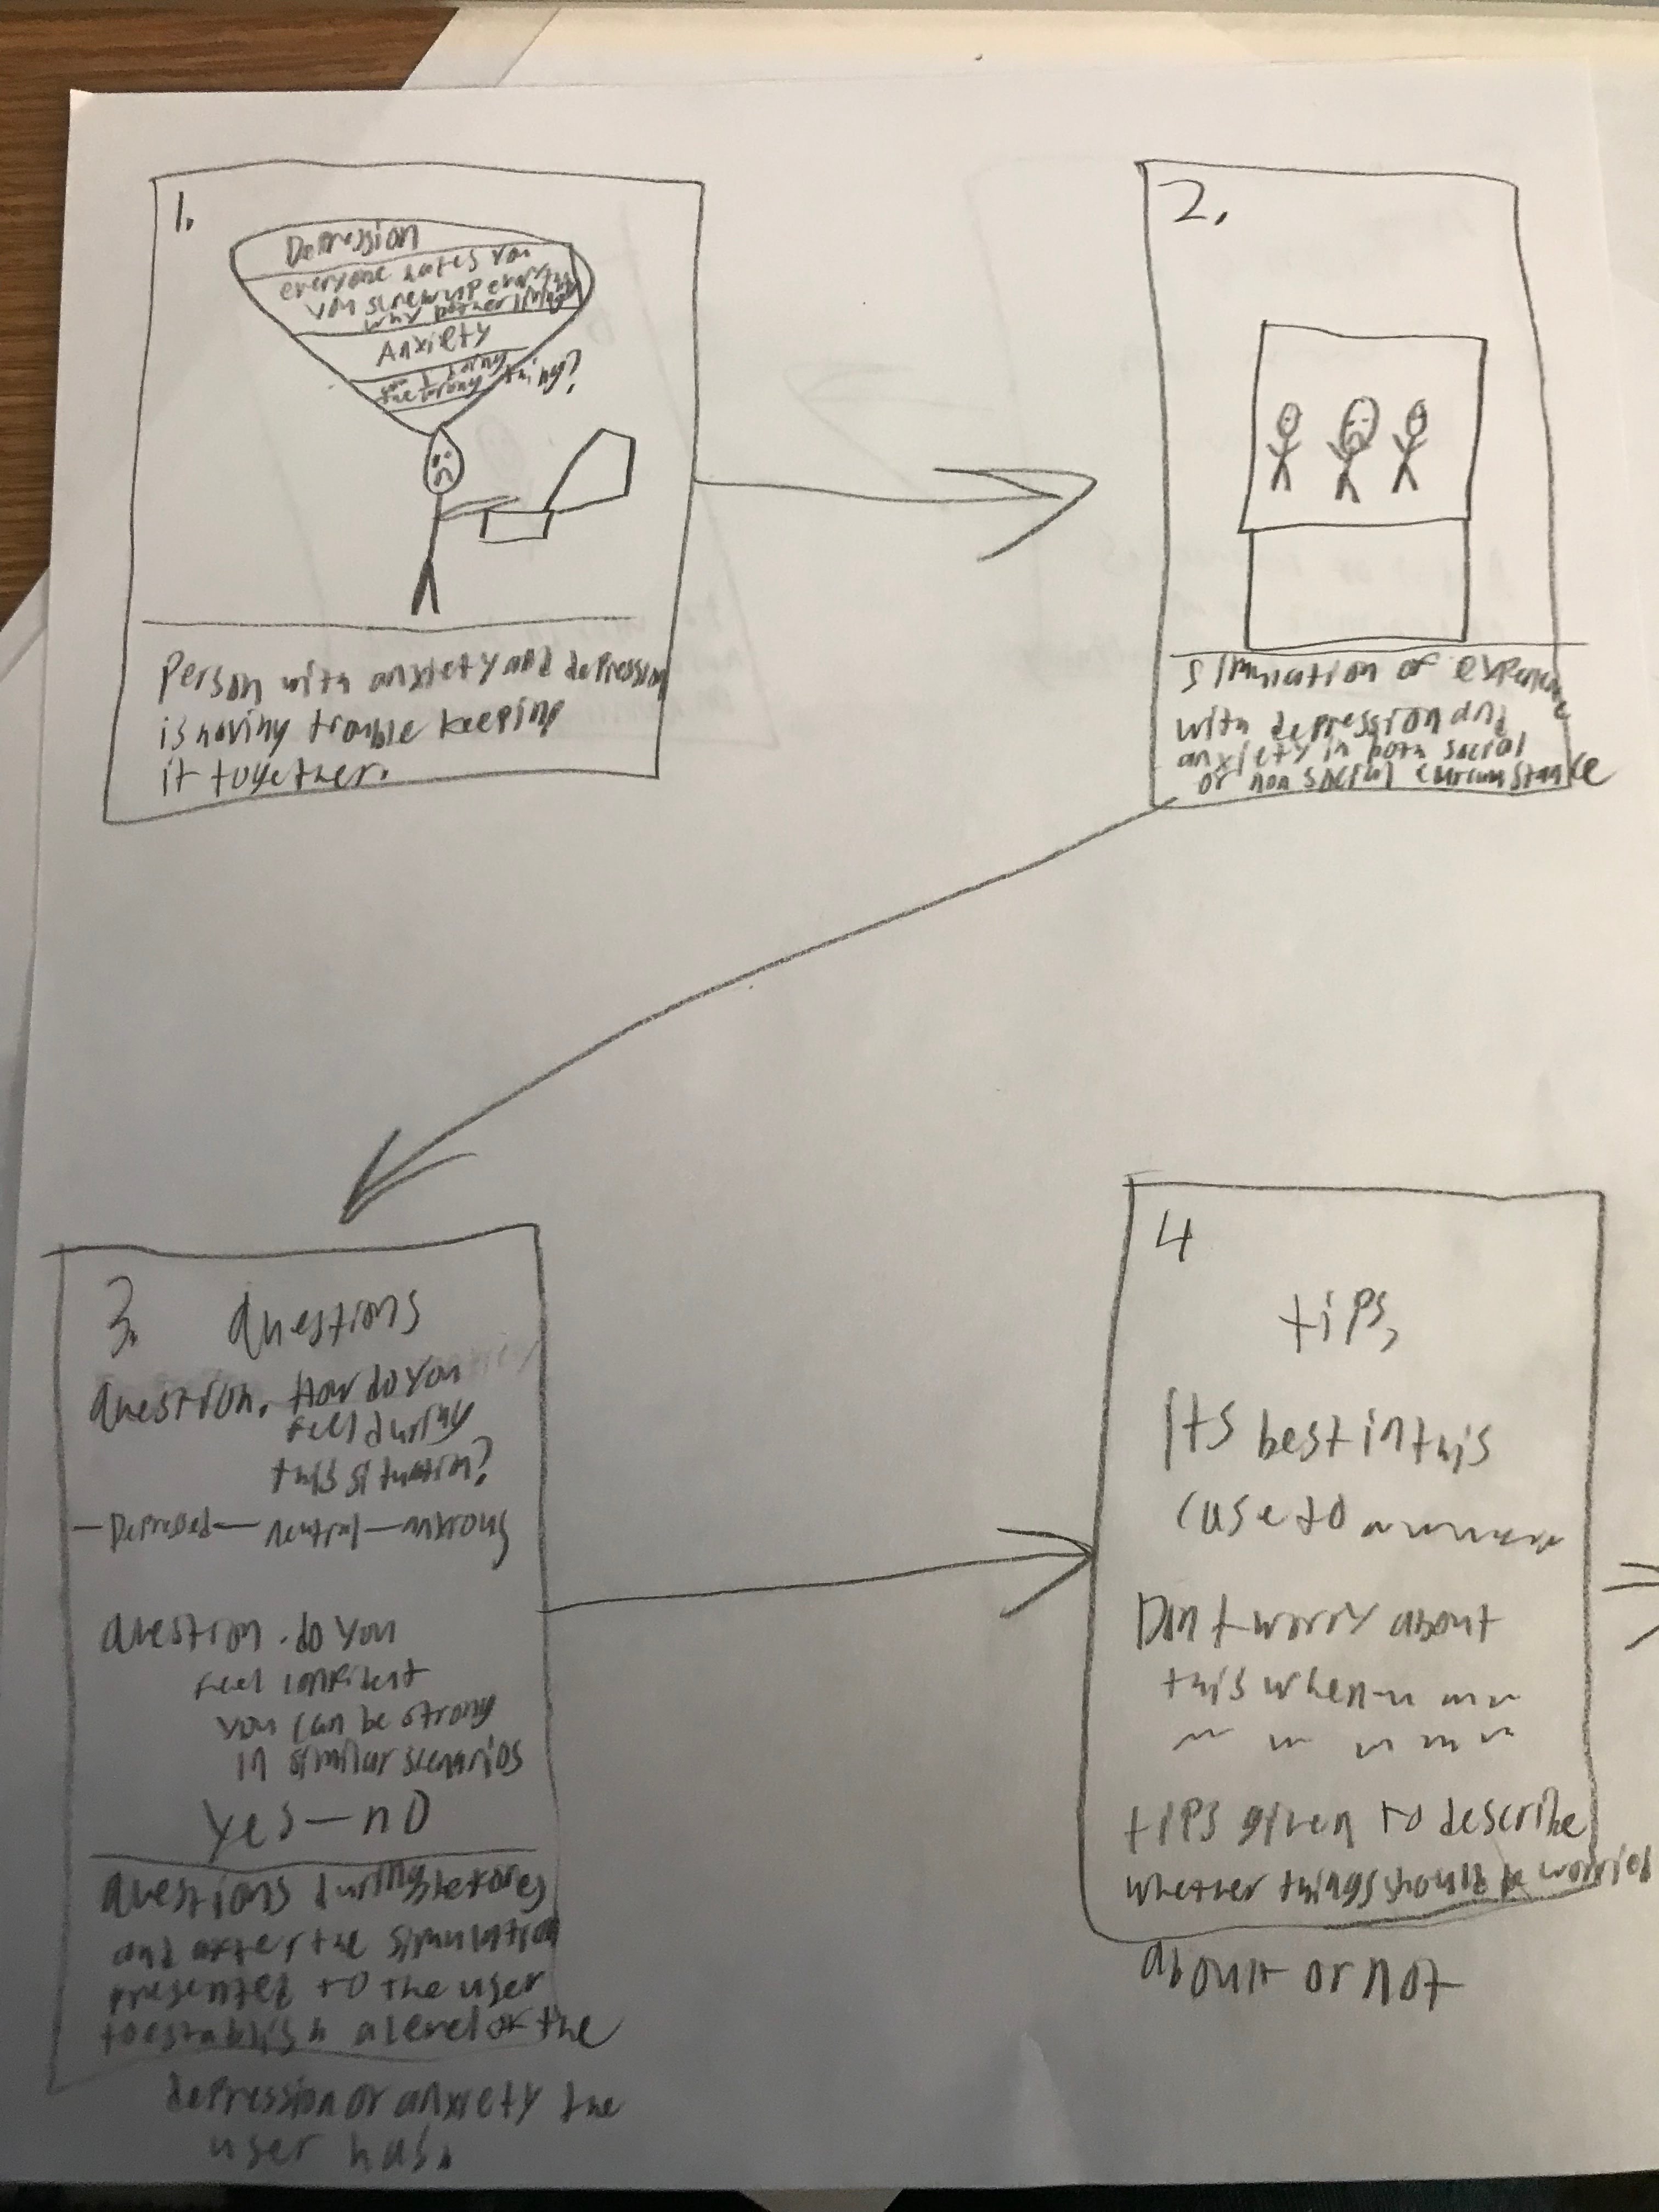 1.
Depression
everyone hates you
you screw up everything
why bother
Anxiety
the wrong thing?
Person with anxiety and depression
is having trouble keeping
it together.
2.
Simulation of experience
with depression and
anxiety in both social
or non social circumstance
3. Questions
Question. How do you
feel during
this situation?
— Depressed — neutral — anxious
Question. do you
feel confident
you can be strong
in similar scenarios
yes — no
Questions during, before,
and after the simulation
presented to the user
to establish a level of the
depression or anxiety the
user has.
4
tips,
Its best in this
case to
Dont worry about
this when
tips given to describe
whether things should be worried
about or not